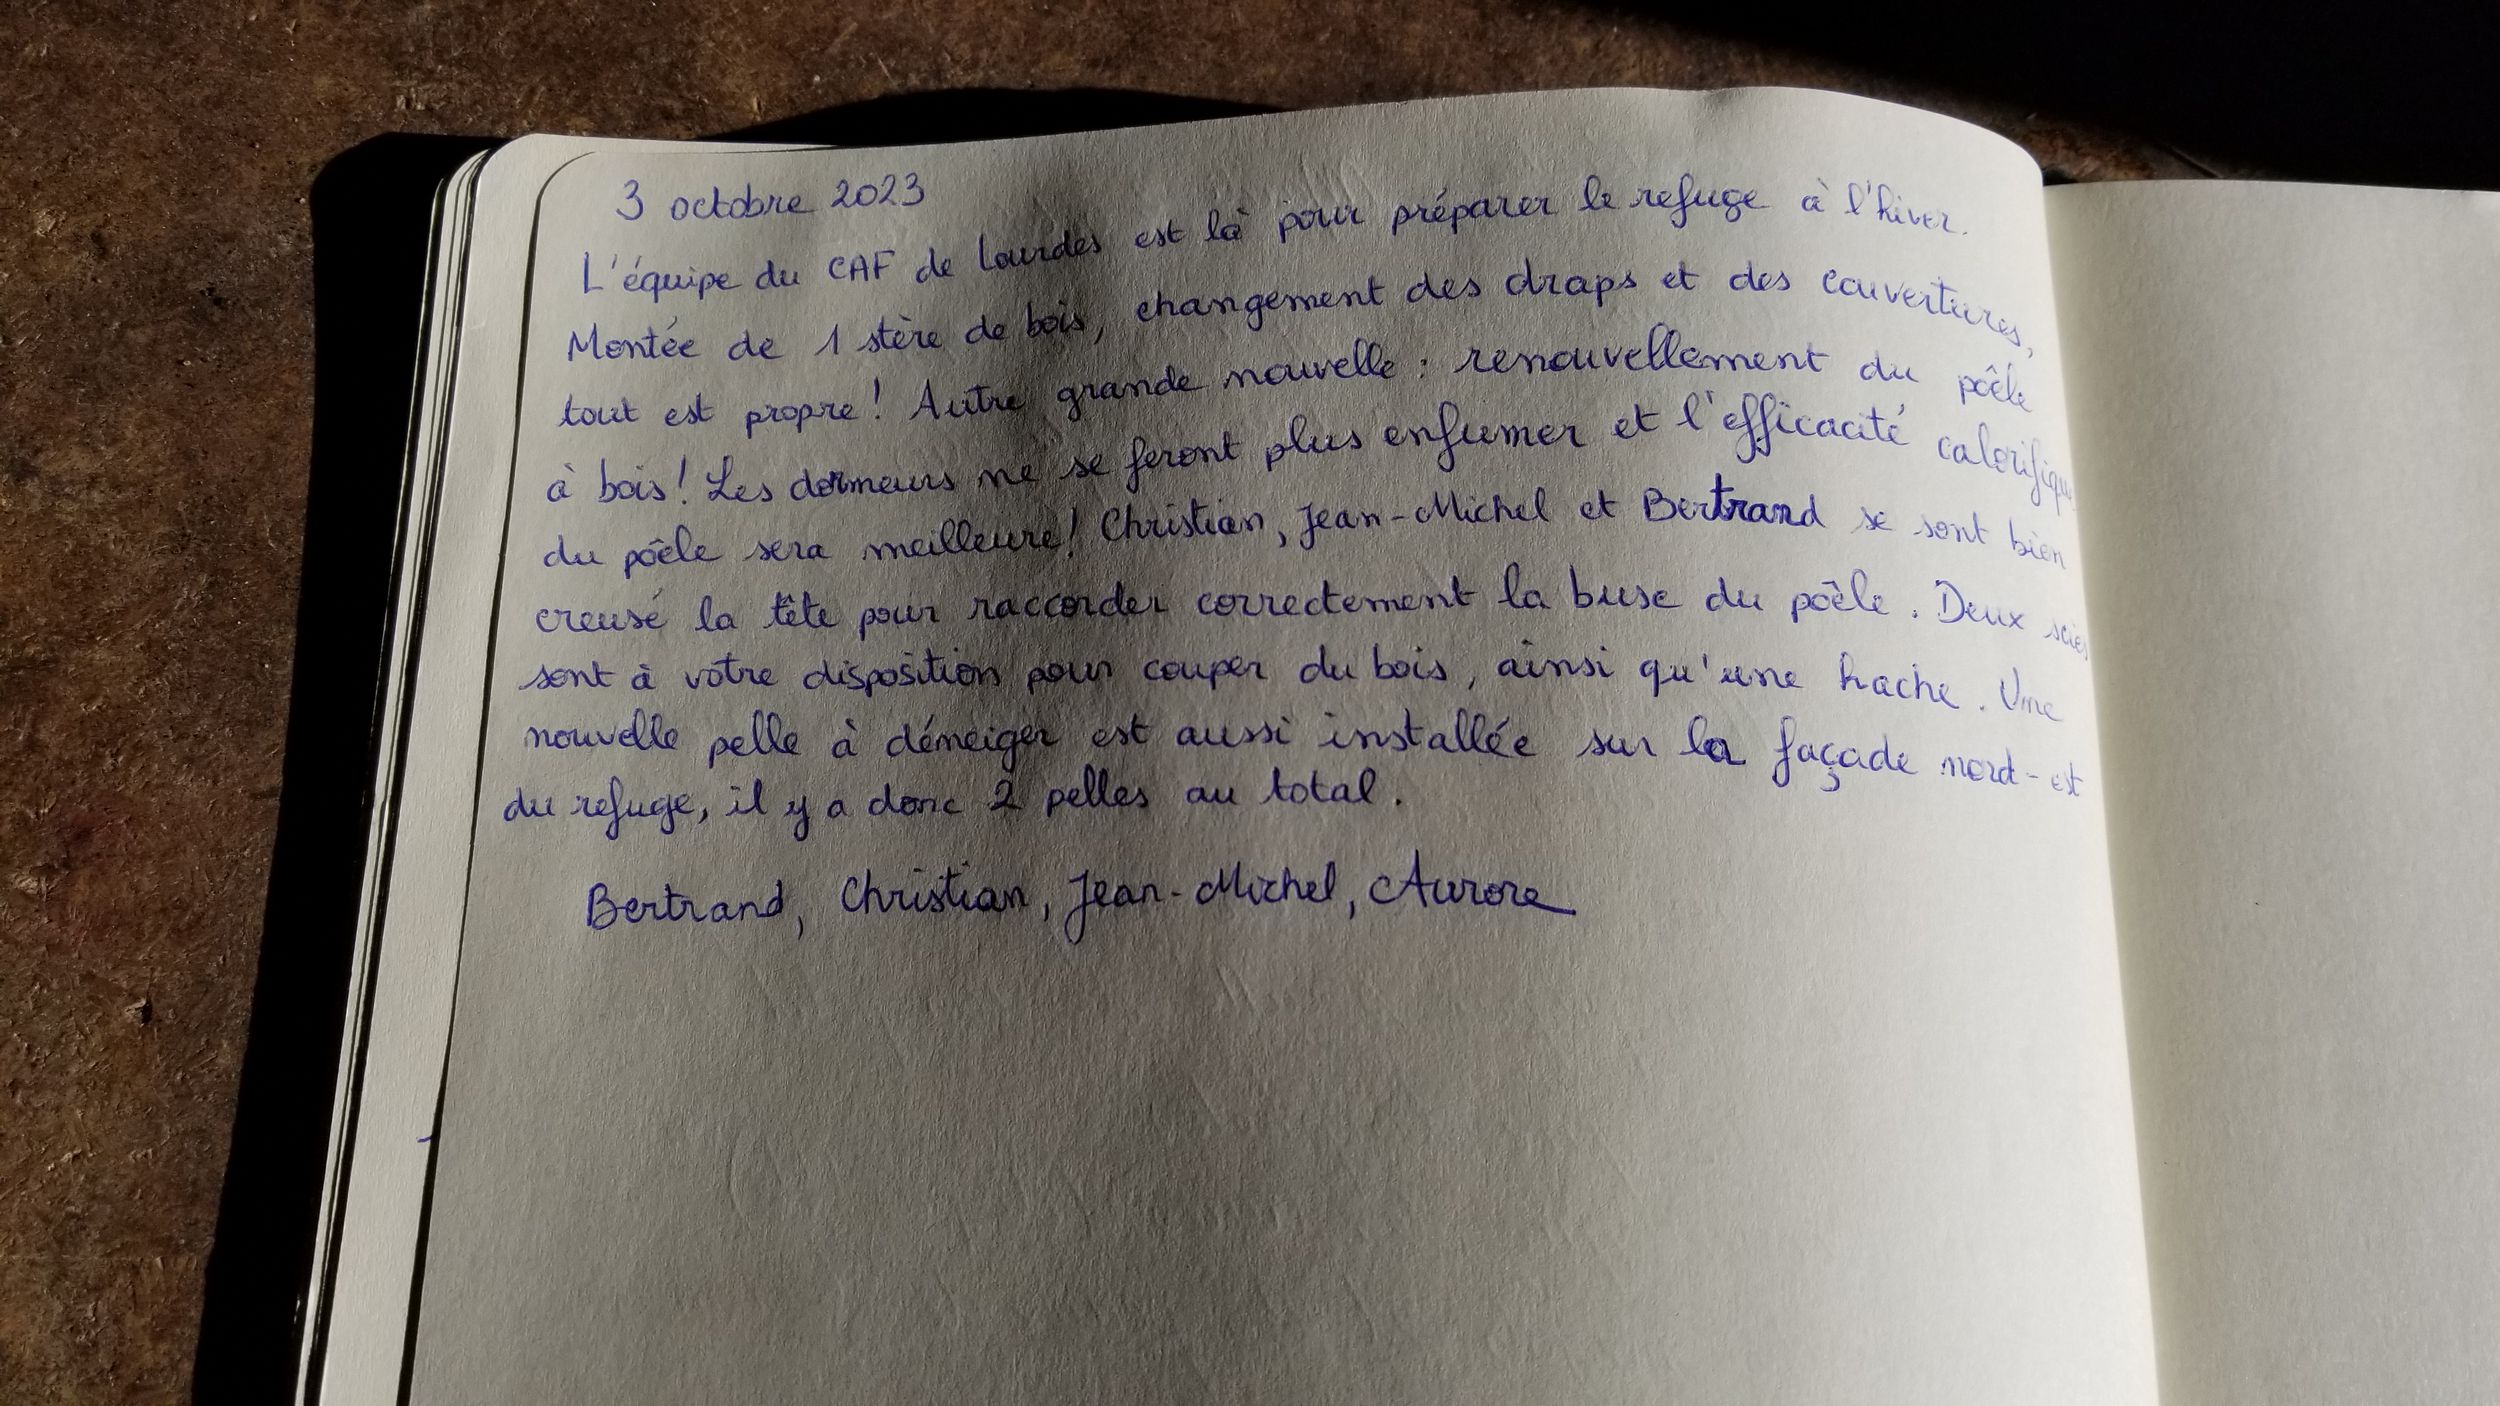 3 octobre 2023
L'équipe du CAF de Lourdes est là pour préparer le refuge à l'hiver.
Montée de 1 stère de bois, changement des draps et des couvertures,
tout est propre ! Autre grande nouvelle : renouvellement du poêle
à bois ! Les dormeurs ne se feront plus enfumer et l'efficacité calorifique
du poêle sera meilleure ! Christian, Jean-Michel et Bertrand se sont bien
creusé la tête pour raccorder correctement la buse du poêle. Deux scies
sont à votre disposition pour couper du bois, ainsi qu'une hache. Une
nouvelle pelle à déneiger est aussi installée sur la façade nord-est
du refuge, il y a donc 2 pelles au total.
Bertrand, Christian, Jean-Michel, Aurore